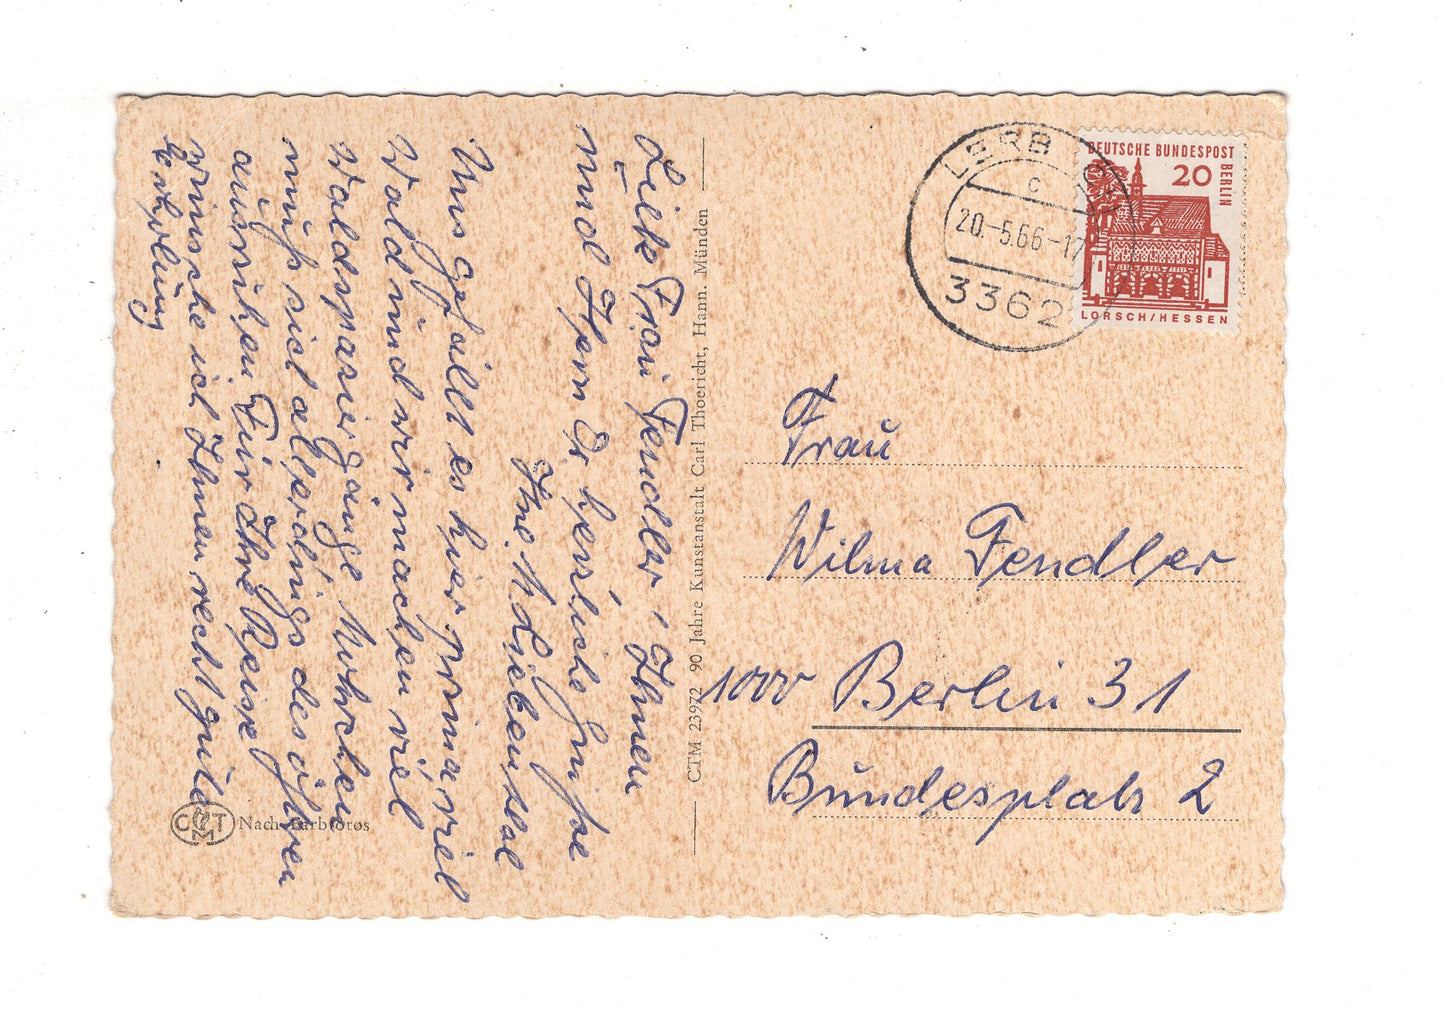 Liebe Frau Fendler! Ihnen
und Herrn Dr. herzliche Grüße
Ihre
Uns gefällt es hier prima, viel
Wald und wir machen viel
Waldspaziergänge. Muttchen
muß sich allerdings des öfteren
ausruhen. Für Ihre Reise
wünsche ich Ihnen recht gute
Erholung
CTM 23972 90 Jahre Kunstanstalt Carl Thoericht, Hann. Münden
CTM Nach Farbfotos
LERBACH
c
20.-5.66-17
3362
DEUTSCHE BUNDESPOST
BERLIN
20
LORSCH/HESSEN
Frau
Wilma Fendler
1000 Berlin 31
Bundesplatz 2